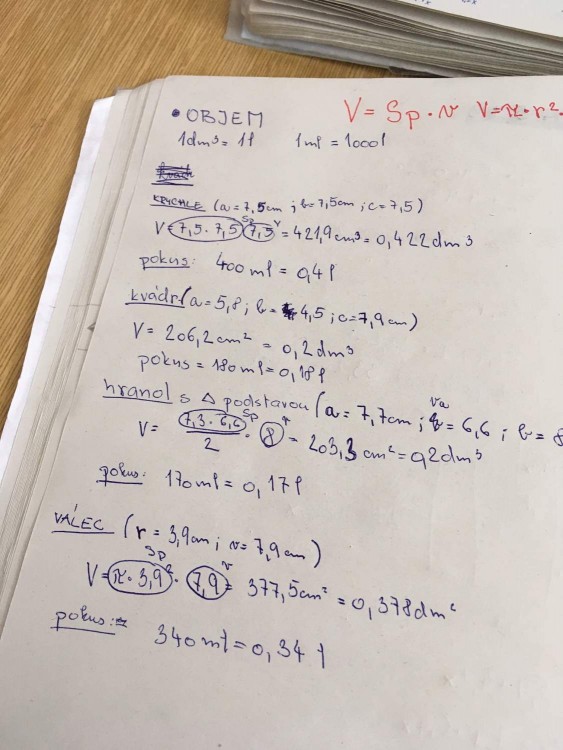 • OBJEM V = Sp · v V = π · r²·
1dm³ = 1l 1ml = 1000l
KRYCHLE (a = 7,5cm ; b = 7,5cm ; c = 7,5)
Sp v
V = 7,5 · 7,5 · 7,5 = 421,9cm³ = 0,422dm³
pokus: 400ml = 0,4l
kvádr (a = 5,8 ; b = 4,5 ; c = 7,9cm)
V = 206,2cm² = 0,2dm³
pokus = 180ml = 0,18l
hranol s △ podstavou (a = 7,7cm ; va = 6,6 ; b = 8
V = 7,3 · 6,6 / 2 Sp · 8 v = 203,3cm² = 0,2dm³
pokus: 170ml = 0,17l
VÁLEC (r = 3,9cm ; v = 7,9cm)
Sp v
V = π · 3,9² · 7,9 = 377,5cm² = 0,378dm²
pokus: = 340ml = 0,34l